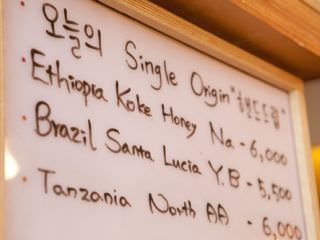 오늘의 Single Origin "핸드드립"
· Ethiopia Koke Honey Na - 6,000
· Brazil Santa Lucia Y.B - 5,500
· Tanzania North AA - 6,000